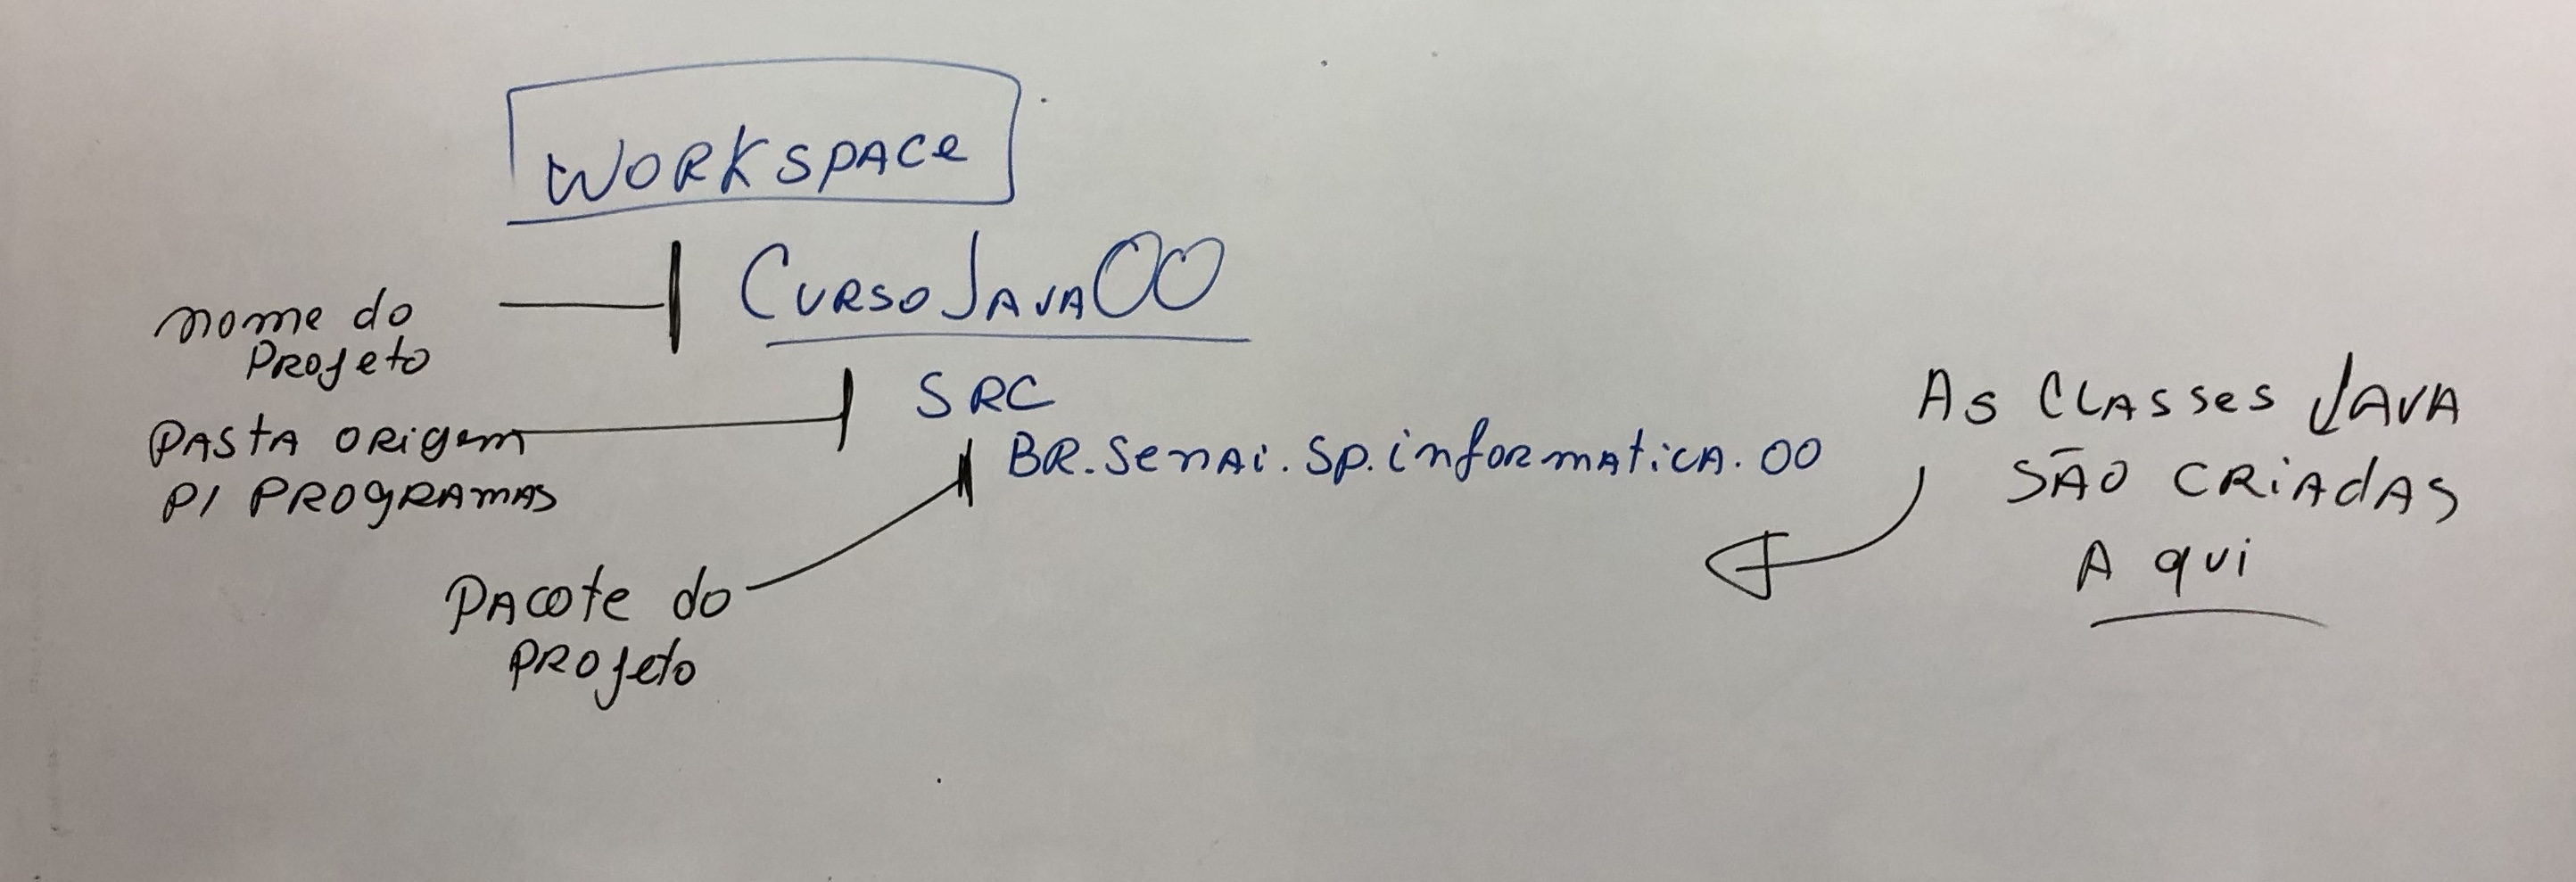 WORKSPACe
CURSOJAVAOO
nome do
PROJeto
SRC
PASTA ORigem
P/ PROgRAmAS
BR.SenAi.SP.infoRmAticA.OO
PAcote do
PROJeto
As CLAsses JAVA
SÃO CRiAdAS
Aqui